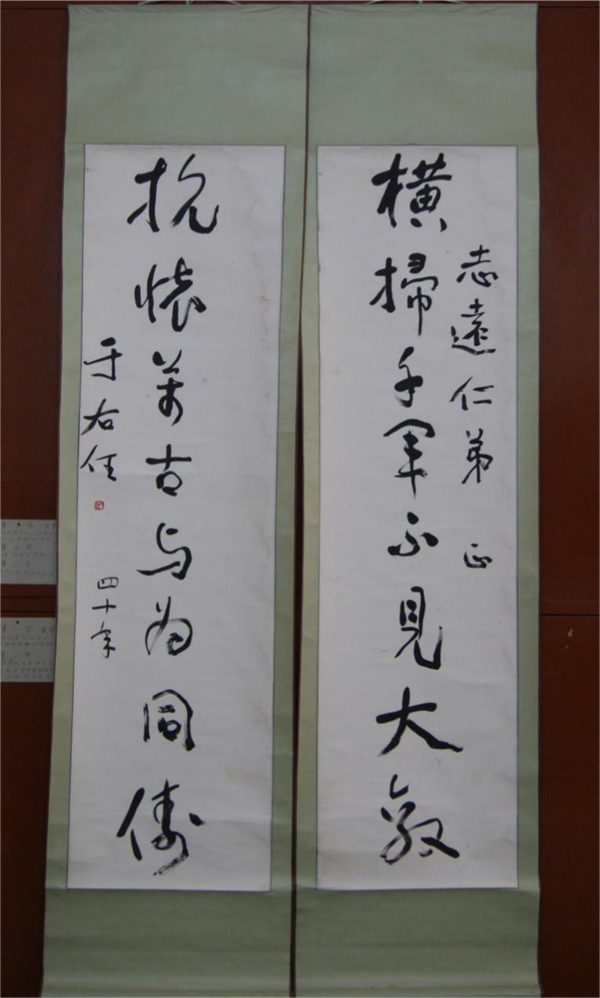 志遠仁弟 正
橫掃千軍不見大敵
抗懷萬古与為同儔
于右任
四十年